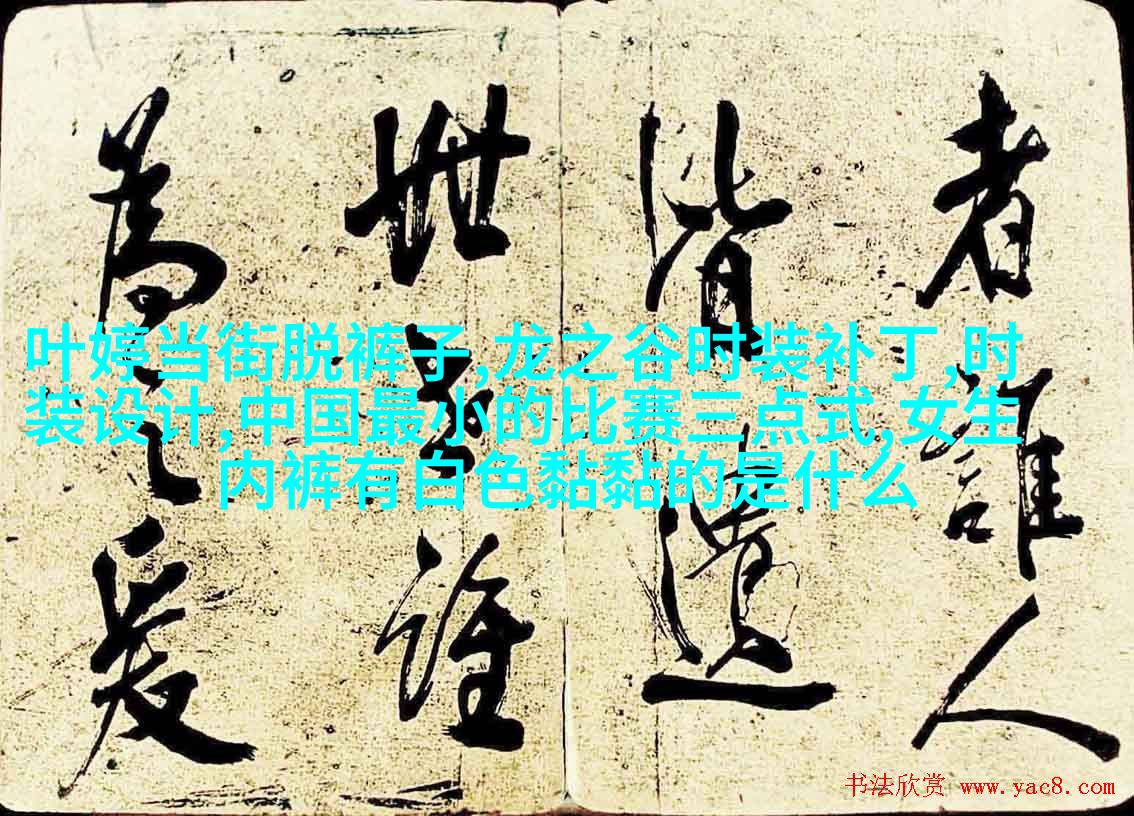 者誰人
皆遺
世誰
為之爰
叶婷当街脱裤子,龙之谷时装补丁,时
装设计,中国最小的比赛三点式,女生
内裤有白色黏黏的是什么
书法欣赏 www.yac8.com